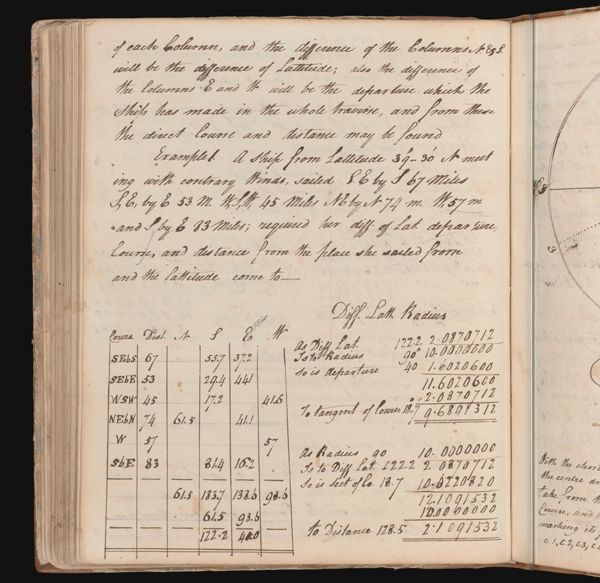 of each Column, and the difference of the Columns N & S
will be the difference of Lattitude; also the difference of
the Columns E and W will be the departure which the
Ship has made in the whole traverse, and from these
the direct Course and distance may be found
Example 1 A Ship from Lattitude 39°-30' N meet
ing with contrary Winds, sailed S E by S 67 Miles
S,E, by E 53 m W,S,W, 45 Miles N,E by N 74 m. W 57 m
and S by E 83 Miles; required her diff of Lat. departure,
Course, and distance from the place she sailed from
and the Lattitude come to
Diff. Latt. Radius
Cours Dist. N S E W
SEbS 67 55.7 37.2
SEbE 53 29.4 44.1
WSW 45 17.2 41.6
NEbN 74 61.5 41.1
W 57 57
SbE 83 81.4 16.2
61.5 183.7 138.6 98.6
61.5 98.6
122.2 40.0
As Diff. Lat. 122.2 2.0870712
Is to Radius 90° 10.0000000
So is departure 40 1.6020600
11.6020600
2.0870712
To tangent of Course 18.7 9.6891312
As Radius 90 10.0000000
Is to Diff Lat. 122.2 2.0870712
So is Sect of Co. 18.7 10.0220820
12.1091532
10.0000000
to Distance 128.5 2.1091532
3
With the chord
the centre
take from
Course, and
marking its
c.1, c2, c3,